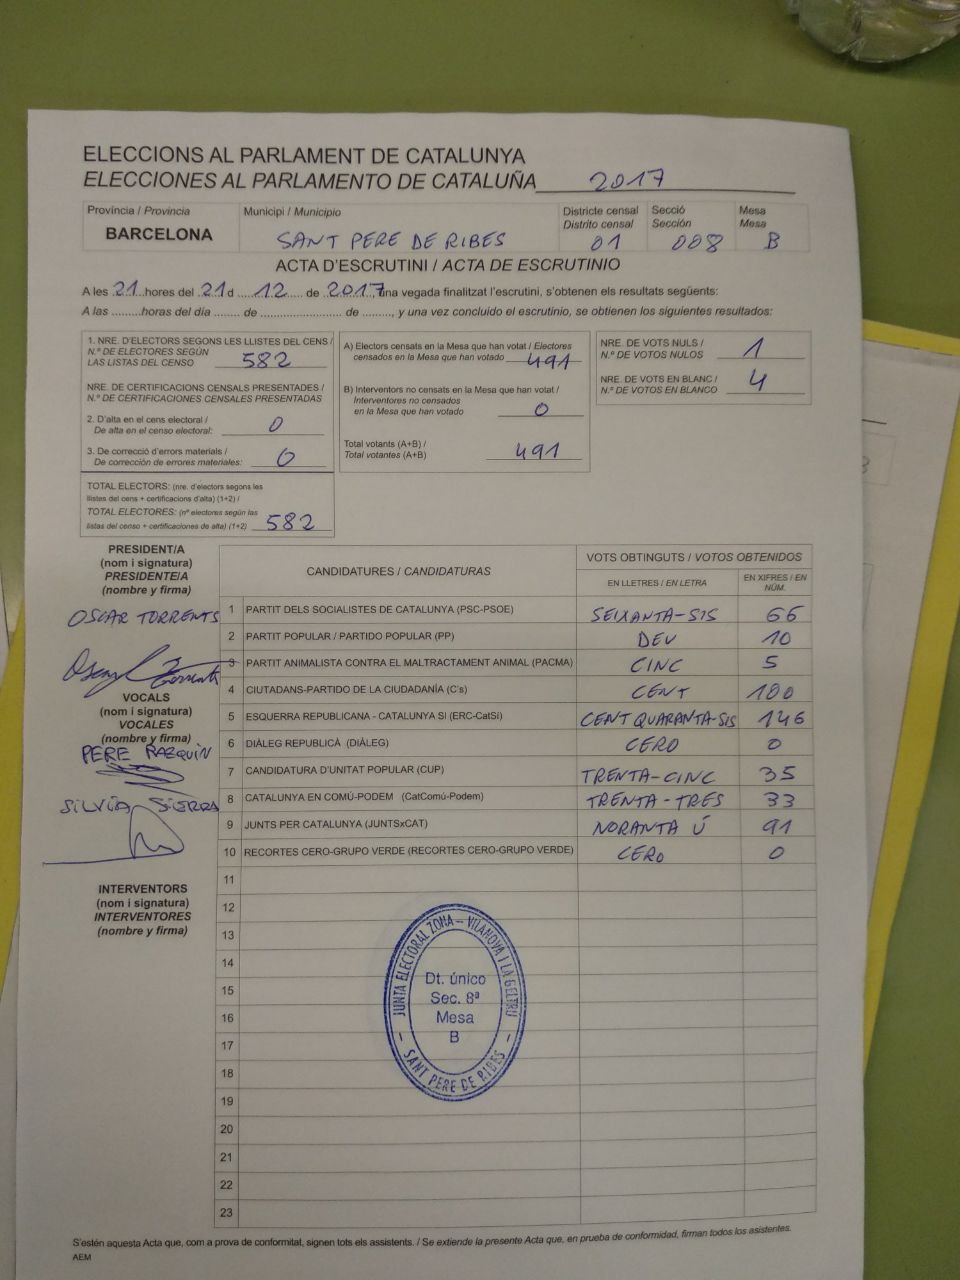 ELECCIONS AL PARLAMENT DE CATALUNYA
ELECCIONES AL PARLAMENTO DE CATALUÑA 2017
Província / Provincia
BARCELONA
Municipi / Municipio
SANT PERE DE RIBES
Districte censal
Distrito censal
01
Secció
Sección
008
Mesa
Mesa
B
ACTA D'ESCRUTINI / ACTA DE ESCRUTINIO
A les 21 hores del 21 d ..... 12 ..... de 2017, una vegada finalitzat l'escrutini, s'obtenen els resultats següents:
A las .........horas del día ........ de ........................ de ........., y una vez concluido el escrutinio, se obtienen los siguientes resultados:
1. NRE. D'ELECTORS SEGONS LES LLISTES DEL CENS /
N.º DE ELECTORES SEGÚN
LAS LISTAS DEL CENSO 582
NRE. DE CERTIFICACIONS CENSALS PRESENTADES /
N.º DE CERTIFICACIONES CENSALES PRESENTADAS
2. D'alta en el cens electoral /
De alta en el censo electoral: 0
3. De correcció d'errors materials /
De corrección de errores materiales: 0
TOTAL ELECTORS: (nre. d'electors segons les
llistes del cens + certificacions d'alta) (1+2) /
TOTAL ELECTORES: (nº electores según las
listas del censo + certificaciones de alta) (1+2) 582
A) Electors censats en la Mesa que han votat / Electores
censados en la Mesa que han votado 491
B) Interventors no censats en la Mesa que han votat /
Interventores no censados
en la Mesa que han votado 0
Total votants (A+B) /
Total votantes (A+B) 491
NRE. DE VOTS NULS /
N.º DE VOTOS NULOS 1
NRE. DE VOTS EN BLANC /
N.º DE VOTOS EN BLANCO 4
PRESIDENT/A
(nom i signatura)
PRESIDENTE/A
(nombre y firma)
OSCAR TORRENTS
VOCALS
(nom i signatura)
VOCALES
(nombre y firma)
PERE RAZQUIN
SILVIA SIERRA
INTERVENTORS
(nom i signatura)
INTERVENTORES
(nombre y firma)
CANDIDATURES / CANDIDATURAS
VOTS OBTINGUTS / VOTOS OBTENIDOS
EN LLETRES / EN LETRA
EN XIFRES / EN NÚM.
1 PARTIT DELS SOCIALISTES DE CATALUNYA (PSC-PSOE) SEIXANTA-SIS 66
2 PARTIT POPULAR / PARTIDO POPULAR (PP) DEU 10
3 PARTIT ANIMALISTA CONTRA EL MALTRACTAMENT ANIMAL (PACMA) CINC 5
4 CIUTADANS-PARTIDO DE LA CIUDADANÍA (C's) CENT 100
5 ESQUERRA REPUBLICANA - CATALUNYA SI (ERC-CatSí) CENT QUARANTA-SIS 146
6 DIÀLEG REPUBLICÀ (DIÀLEG) CERO 0
7 CANDIDATURA D'UNITAT POPULAR (CUP) TRENTA-CINC 35
8 CATALUNYA EN COMÚ-PODEM (CatComú-Podem) TRENTA-TRES 33
9 JUNTS PER CATALUNYA (JUNTSxCAT) NORANTA Ú 91
10 RECORTES CERO-GRUPO VERDE (RECORTES CERO-GRUPO VERDE) CERO 0
11
12
13
14
15
16
17
18
19
20
21
22
23
JUNTA ELECTORAL ZONA – VILANOVA I LA GELTRU
Dt. único
Sec. 8ª
Mesa
B
– SANT PERE DE RIBES –
S'estén aquesta Acta que, com a prova de conformitat, signen tots els assistents. / Se extiende la presente Acta que, en prueba de conformidad, firman todos los asistentes.
AEM